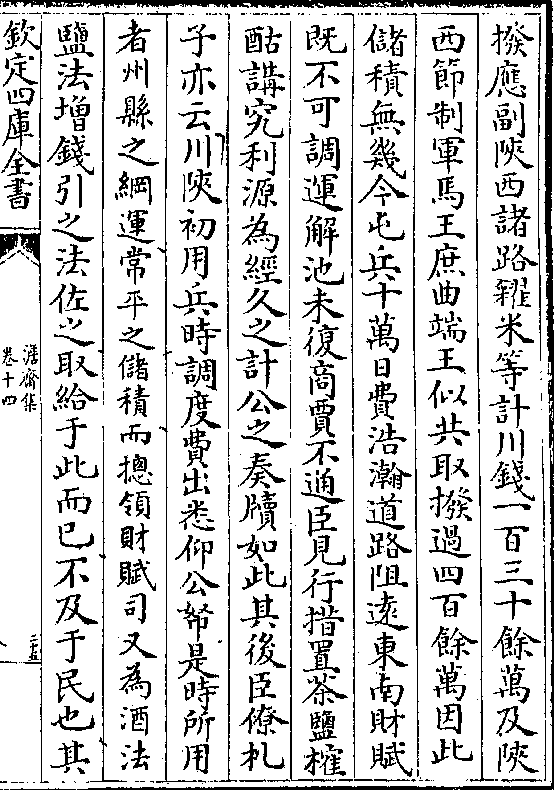 撥應副陜西諸路糴米等計川錢一百三十餘萬及陜
西節制軍馬王庶曲端王似共取撥過四百餘萬因此
儲積無幾今屯兵十萬日費浩瀚道路阻逺東南財賦
既不可調運解池未復商賈不通臣見行措置茶鹽榷
酤講究利源為經久之計公之奏牘如此其後臣僚札
子亦云川陜初用兵時調度費出悉仰公帑是時所用
者州縣之綱運常平之儲積而摠領財賦司又為酒法
鹽法增錢引之法佐之取給于此而已不及于民也其
欽定四庫全書
澹齋集
卷十四
二十五